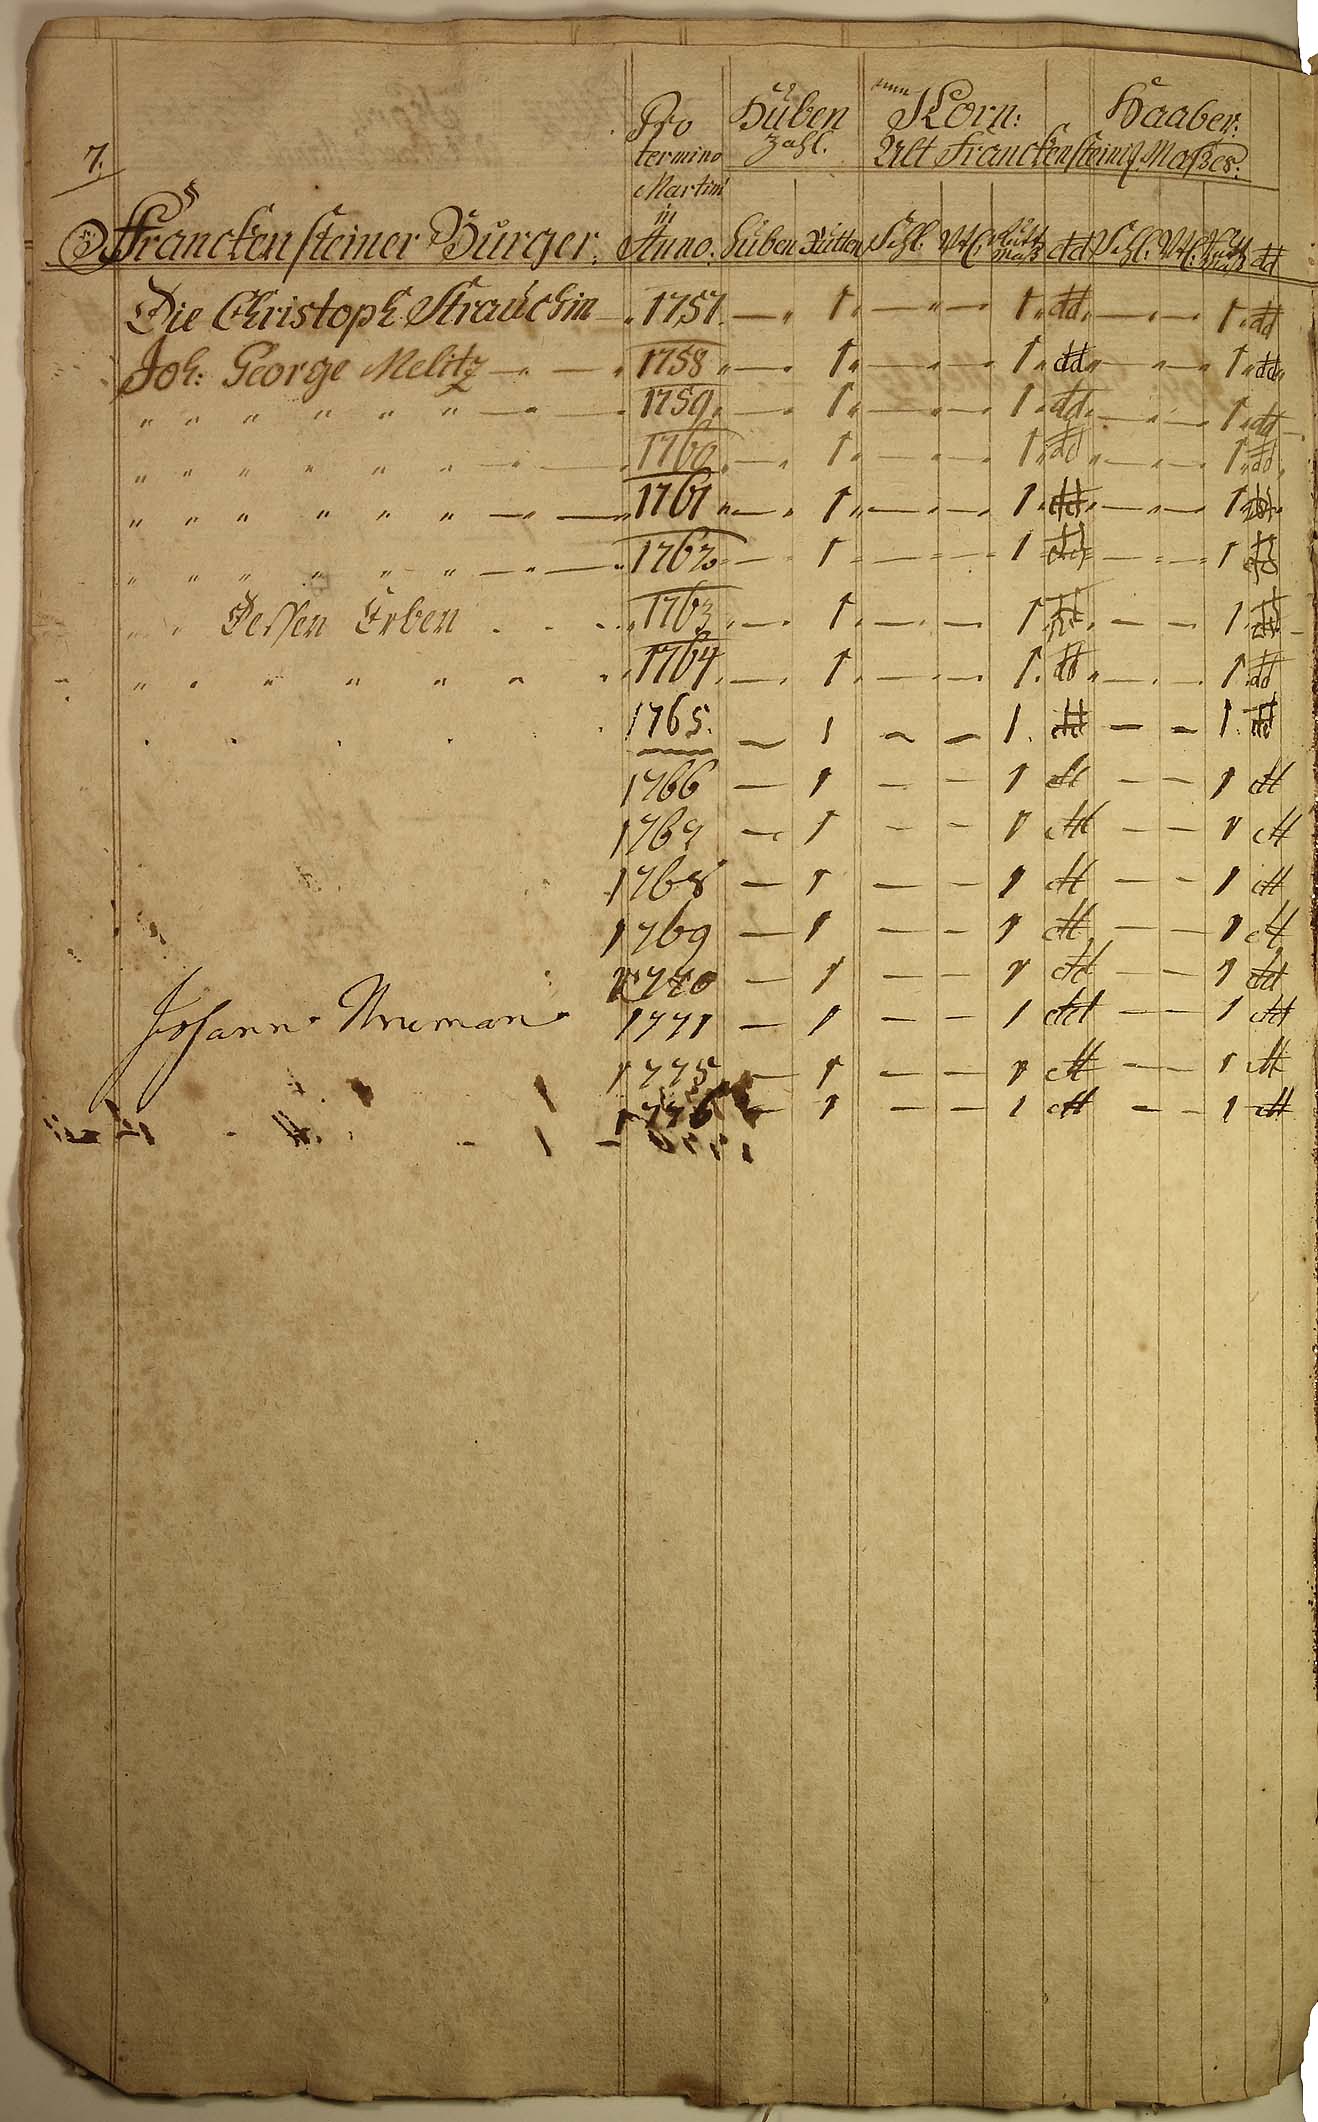 7.
Pro termino Martini in Anno. Huben Zahl. Korn: Haaber:
Alt Franckensteinig. Maßes:
Franckensteiner Burger. Huben Rutten Schl. Vtl. dd Schl. Vtl. dd
Die Christoph Strauchin — 1757. — 1 — — 1 dd — — 1 dd
Joh: George Melitz — — 1758 — 1 — — 1 dd — — 1 dd
" " " " " " — — 1759 — 1 — — 1 dd — — 1 dd
" " " " " " — — 1760 — 1 — — 1 dd — — 1 dd
" " " " " " — — 1761 — 1 — — 1 dd — — 1 dd
" " " " " " — — 1762 — 1 — — 1 dd — — 1 dd
" " Dessen Erben 1763 — 1 — — 1 dd — — 1 dd
" " " " " " 1764 — 1 — — 1 dd — — 1 dd
1765. — 1 — — 1. dd — — 1. dd
1766 — 1 — — 1 dd — — 1 dd
1767 — 1 — — 1 dd — — 1 dd
1768 — 1 — — 1 dd — — 1 dd
1769 — 1 — — 1 dd — — 1 dd
1770 — 1 — — 1 dd — — 1 dd
Johann 1771 — 1 — — 1 dd — — 1 dd
1775 — 1 — — 1 dd — — 1 dd
1776 — 1 — — 1 dd — — 1 dd